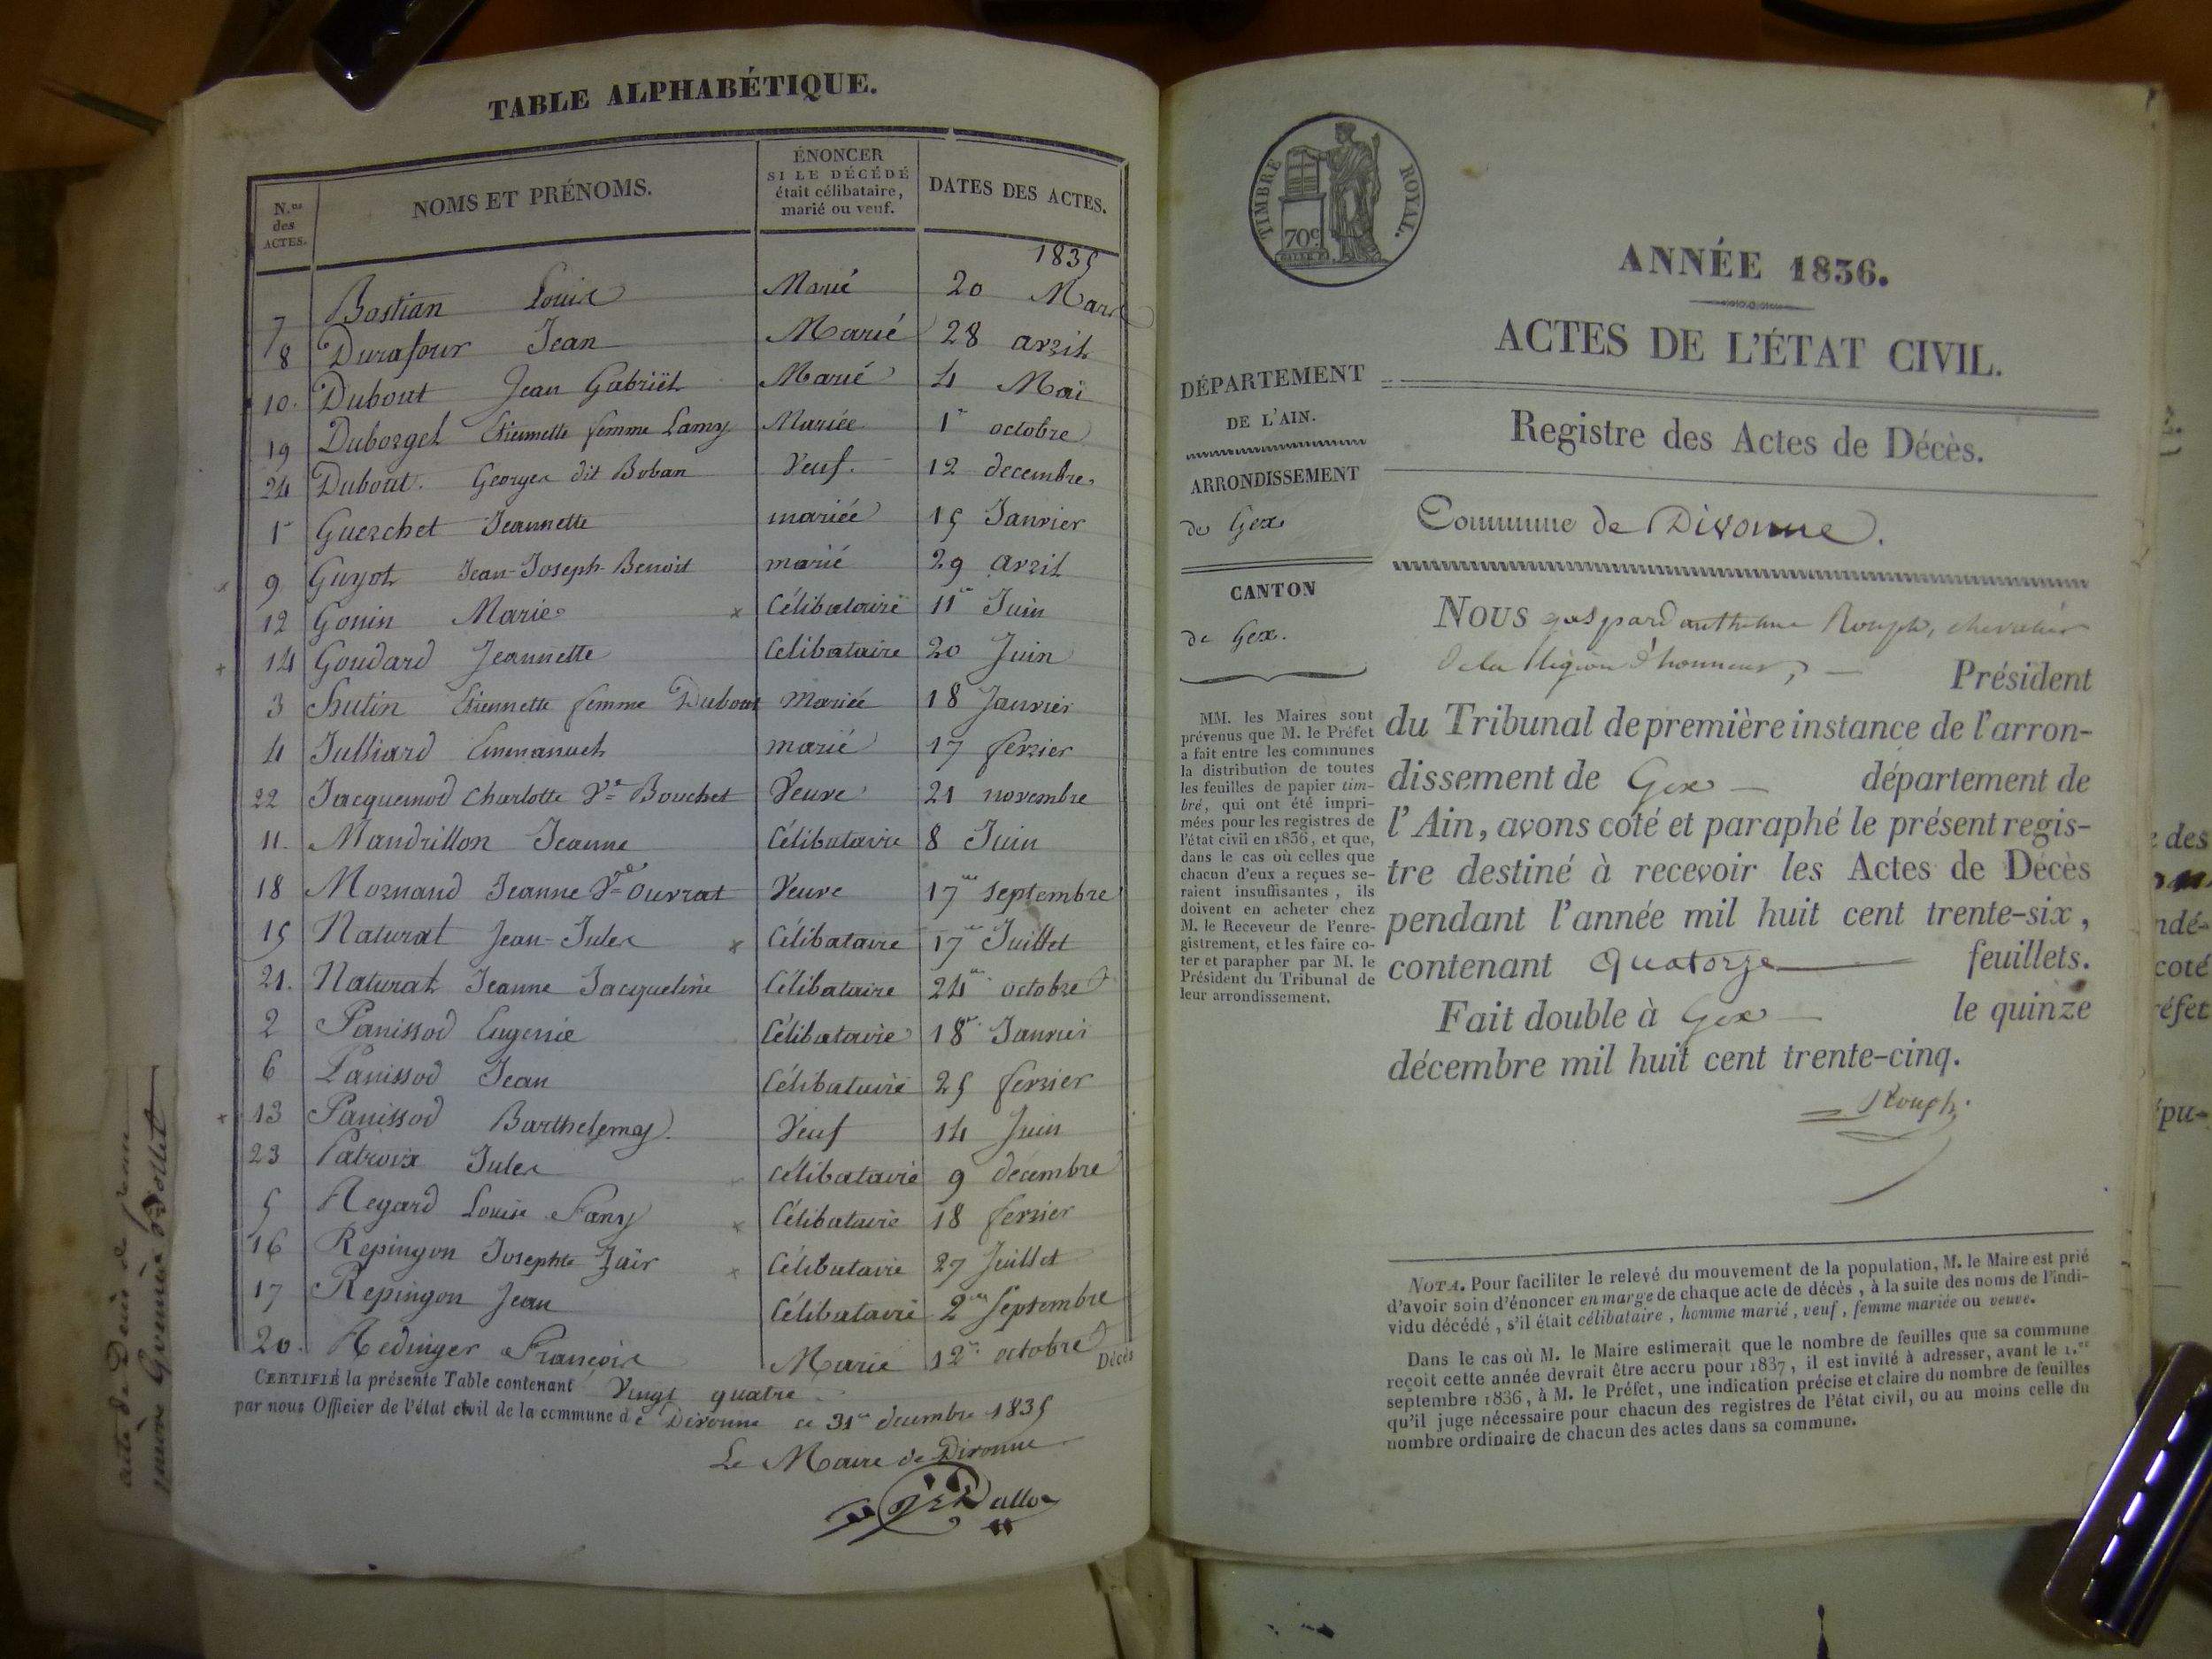 TABLE ALPHABÉTIQUE.
N.os des ACTES.
NOMS ET PRÉNOMS.
ÉNONCER
SI LE DÉCÉDÉ
était célibataire,
marié ou veuf.
DATES DES ACTES.
1835
7 Bastian Louis Marié 20 Mars
8 Durafour Jean Marié 28 avril
10. Dubout Jean Gabriël Marié 4 Mai
19 Duborgel Etiennette femme Lamy Mariée 1er octobre
24 Dubout. Georges dit Boban Veuf. 12 decembre.
1r Guerchet Jeannette mariée 15 Janvier
x 9 Guyot Jean-Joseph-Benoit marié 29 avril
12 Gonin Marie x Célibataire 11e Juin
+ 14 Goudard Jeannette Celibataire 20 Juin
3 Hutin Etiennette femme Dubout mariée 18 Janvier
4 Julliard Emmanuel marié 17 fevrier
22 Jacquemod Charlotte Ve Bouchet Veuve 21 novembre
11. Mandrillon Jeanne Célibataire 8 Juin
18 Mornand Jeanne Ve Ouvrat Veuve 17 Septembre
15 Naturat Jean-Jules x Célibataire 17 Juillet
21. Naturat Jeanne Jacqueline Célibataire 24 octobre
2 Panissod Eugenie Célibataire 18 Janvier
6 Panissod Jean Célibataire 25 fevrier
x 13 Panissod Barthelemy. Veuf 14 Juin
23 Patroix Jules Célibataire 9 décembre
5 Regard Louise Fany x Célibataire 18 fevrier
16 Repingon Josephte Zaïr x Célibataire 27 Juillet
17 Repingon Jean Célibataire 2 Septembre
20. Redinger François Marié 12 octobre
Décès
CERTIFIÉ la présente Table contenant Vingt quatre
par nous Officier de l'état civil de la commune de Divonne ce 31 décembre 1835
Le Maire de Divonne
acte de Décès de
TIMBRE ROYAL.
70c
ANNÉE 1836.
ACTES DE L'ÉTAT CIVIL.
DÉPARTEMENT
DE L'AIN.
ARRONDISSEMENT
de Gex
CANTON
de Gex.
MM. les Maires sont
prévenus que M. le Préfet
a fait entre les communes
la distribution de toutes
les feuilles de papier tim-
bré, qui ont été impri-
mées pour les registres de
l'état civil en 1836, et que,
dans le cas où celles que
chacun d'eux a reçues se-
raient insuffisantes, ils
doivent en acheter chez
M. le Receveur de l'enre-
gistrement, et les faire co-
ter et parapher par M. le
Président du Tribunal de
leur arrondissement.
Registre des Actes de Décès.
Commune de Divonne.
NOUS gaspard anthelme Rouph, chevalier
de la légion d'honneur, Président
du Tribunal de première instance de l'arron-
dissement de Gex département de
l'Ain, avons coté et paraphé le présent regis-
tre destiné à recevoir les Actes de Décès
pendant l'année mil huit cent trente-six,
contenant quatorze feuillets.
Fait double à Gex le quinze
décembre mil huit cent trente-cinq.
Rouph
NOTA. Pour faciliter le relevé du mouvement de la population, M. le Maire est prié
d'avoir soin d'énoncer en marge de chaque acte de décès, à la suite des noms de l'indi-
vidu décédé, s'il était célibataire, homme marié, veuf, femme mariée ou veuve.
Dans le cas où M. le Maire estimerait que le nombre de feuilles que sa commune
reçoit cette année devrait être accru pour 1837, il est invité à adresser, avant le 1.er
septembre 1836, à M. le Préfet, une indication précise et claire du nombre de feuilles
qu'il juge nécessaire pour chacun des registres de l'état civil, ou au moins celle du
nombre ordinaire de chacun des actes dans sa commune.
des
ndé-
coté
réfet
pu-